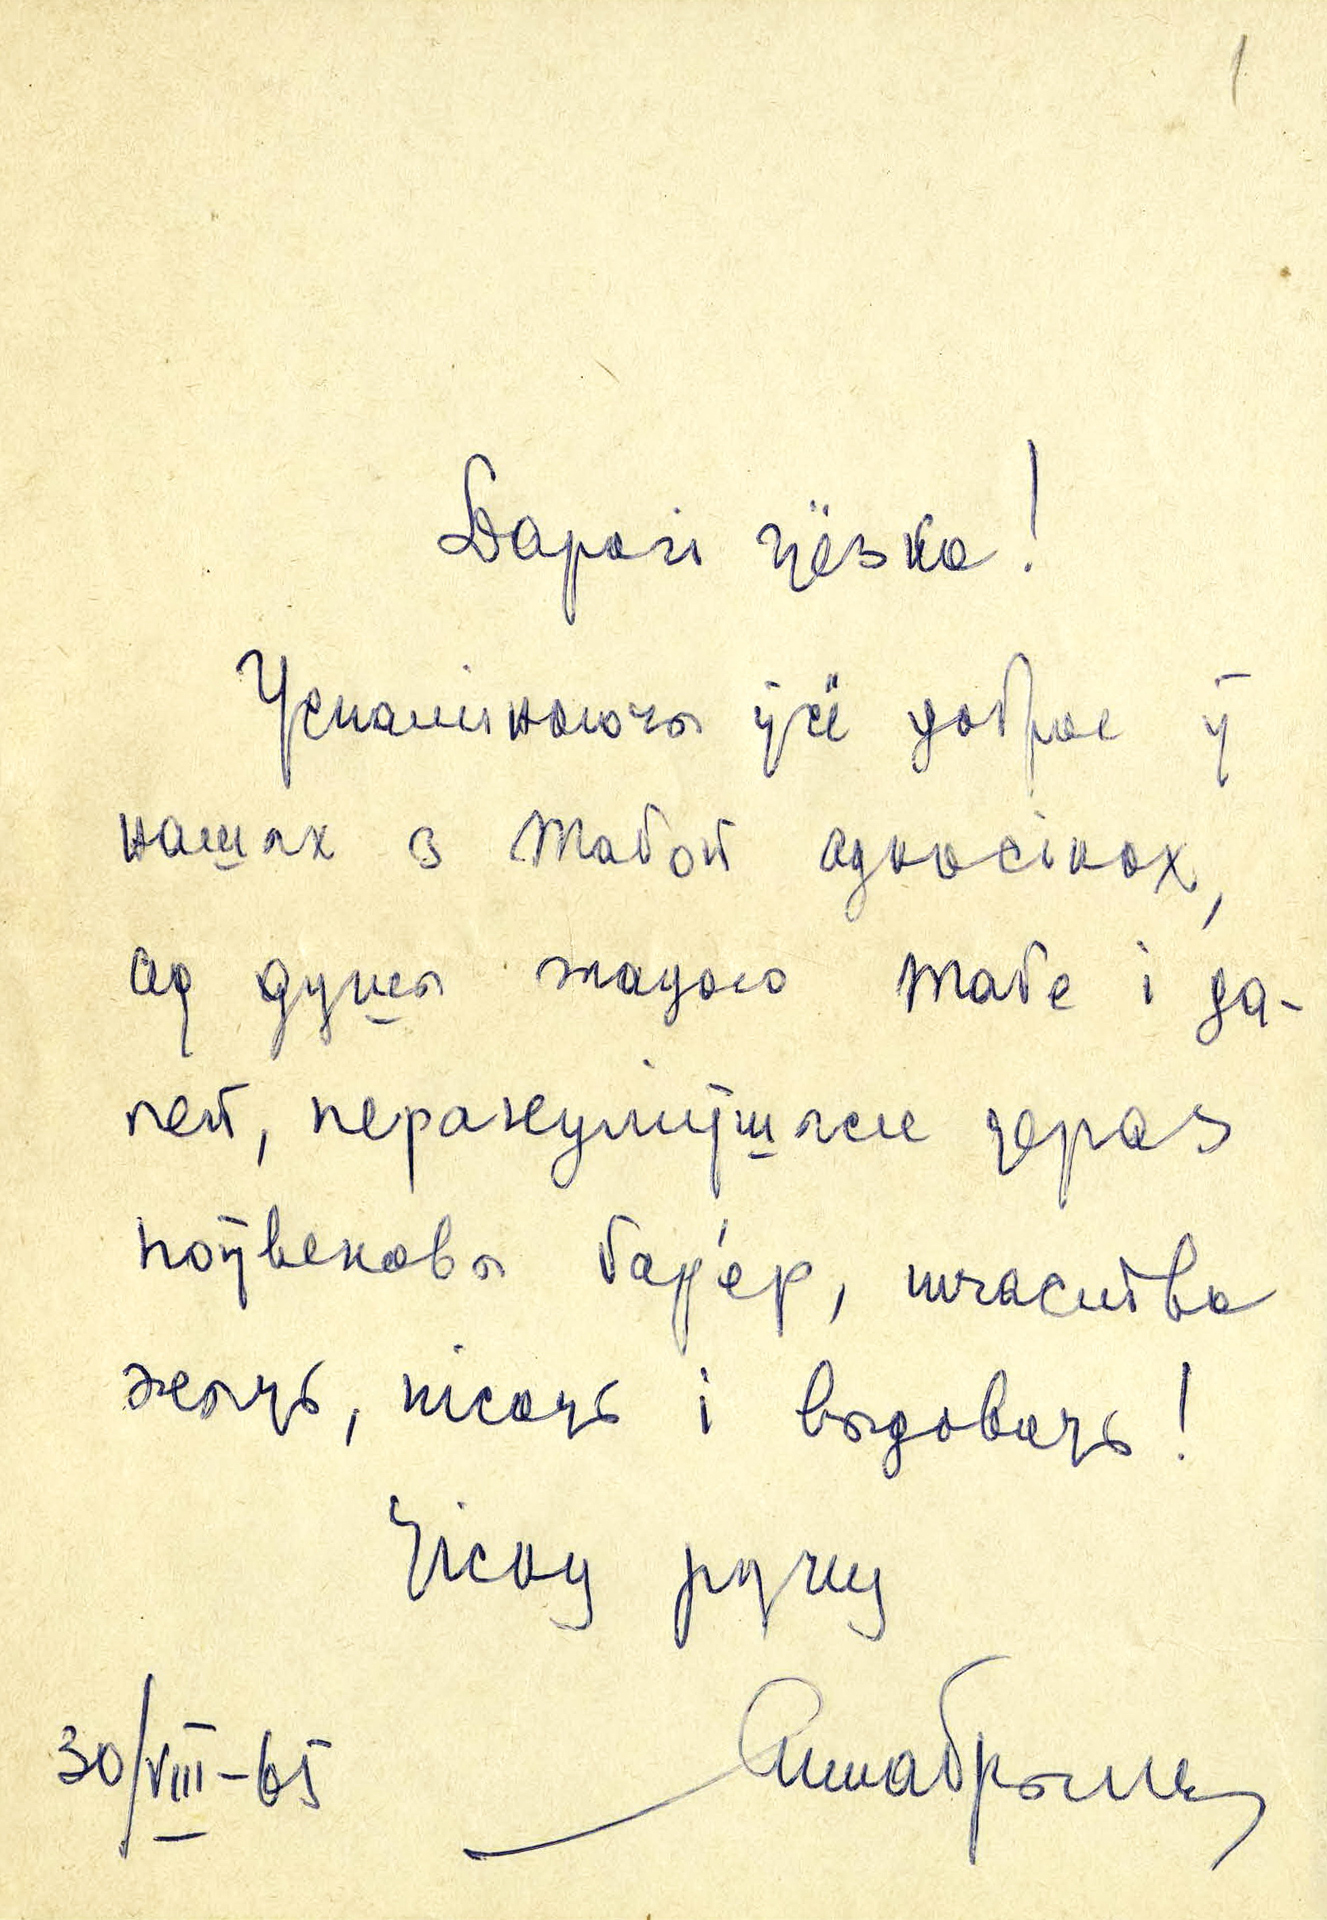 Дарагі цёзка!
Успамінаючы ўсё добрае ў
нашых з Табой адносінах,
ад душы жадаю Табе і да-
лей, перакуліўшыся цераз
поўвекавы бар'ер, шчасліва
жыць, пісаць і выдаваць!
Цісну руку
30/VIII-65